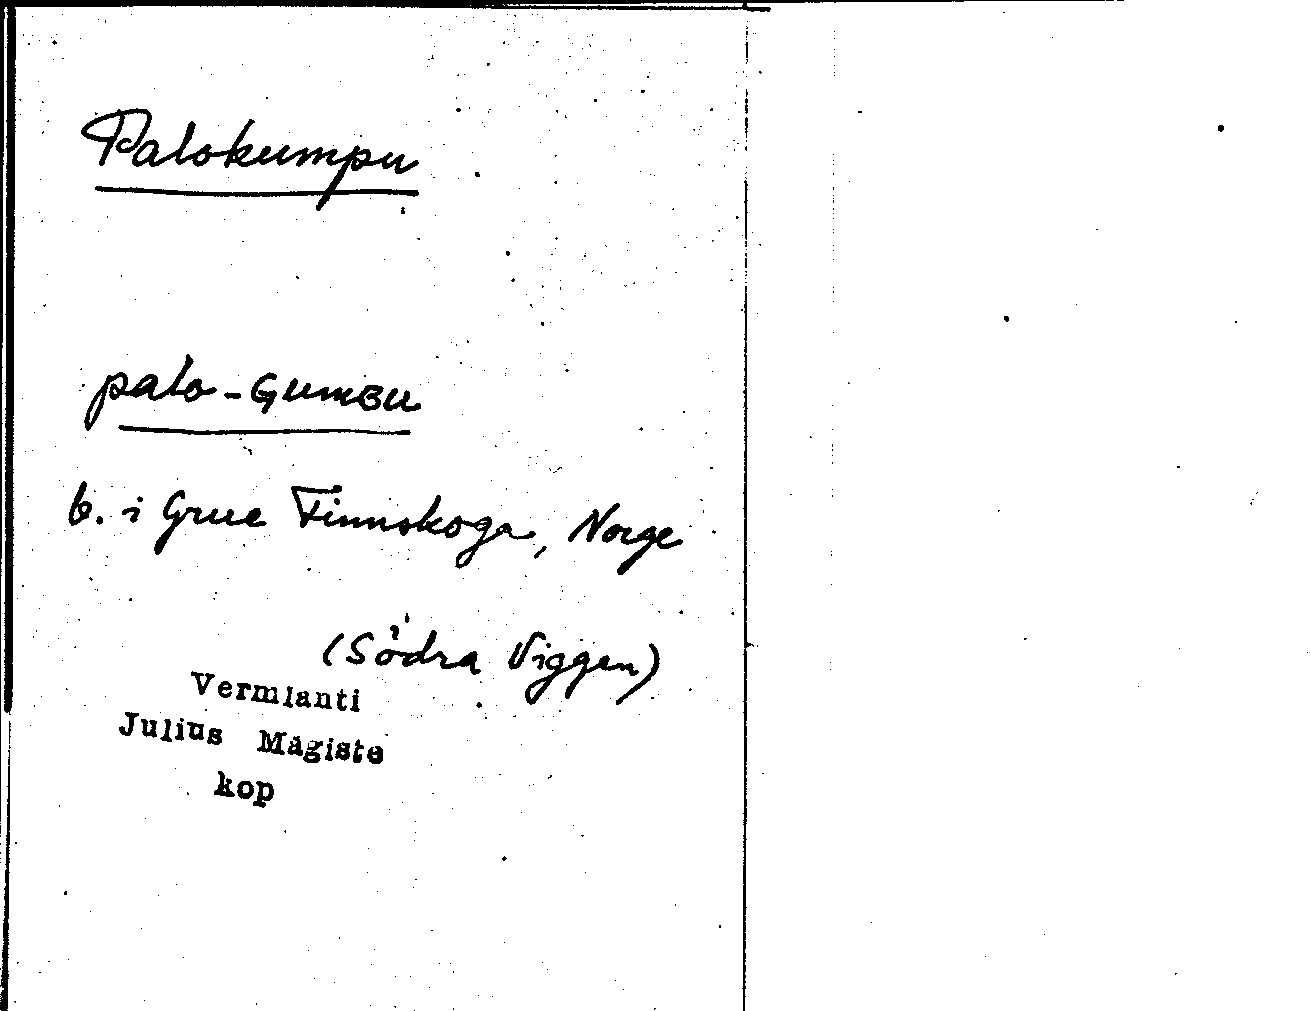 Palokumpu
palo-GumBu
b. i Grue Finnskoga, Norge
(Södra Viggen)
Vermlanti
Julius Mägiste
kop